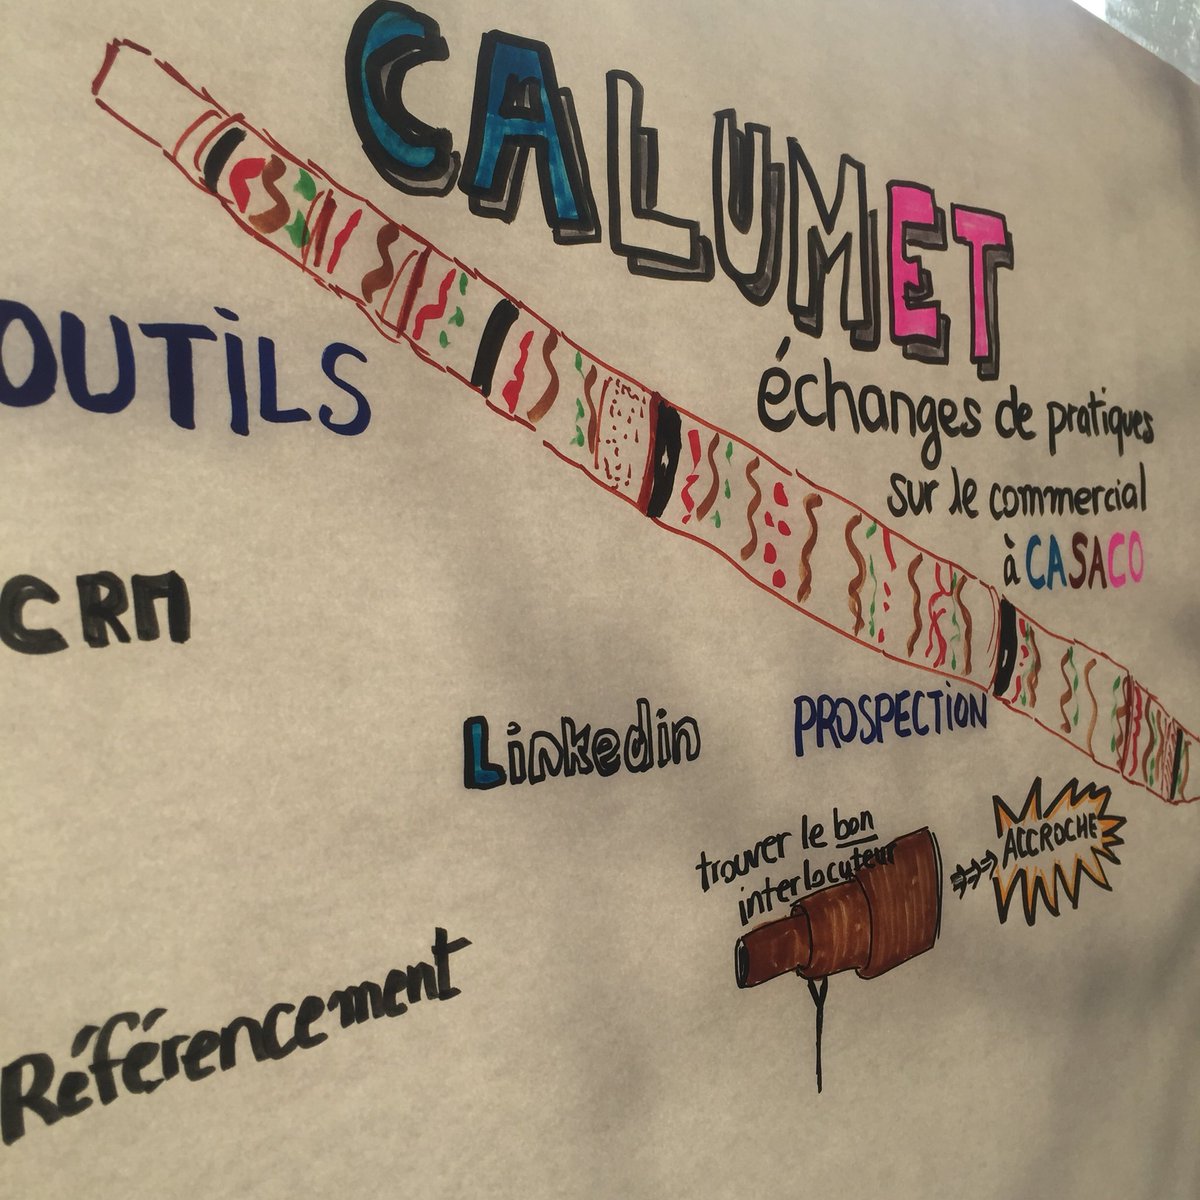 CALUMET
échanges de pratiques
sur le commercial
à CASACO
OUTILS
CRM
Linkedin
PROSPECTION
trouver le bon
interlocuteur
ACCROCHE
Référencement